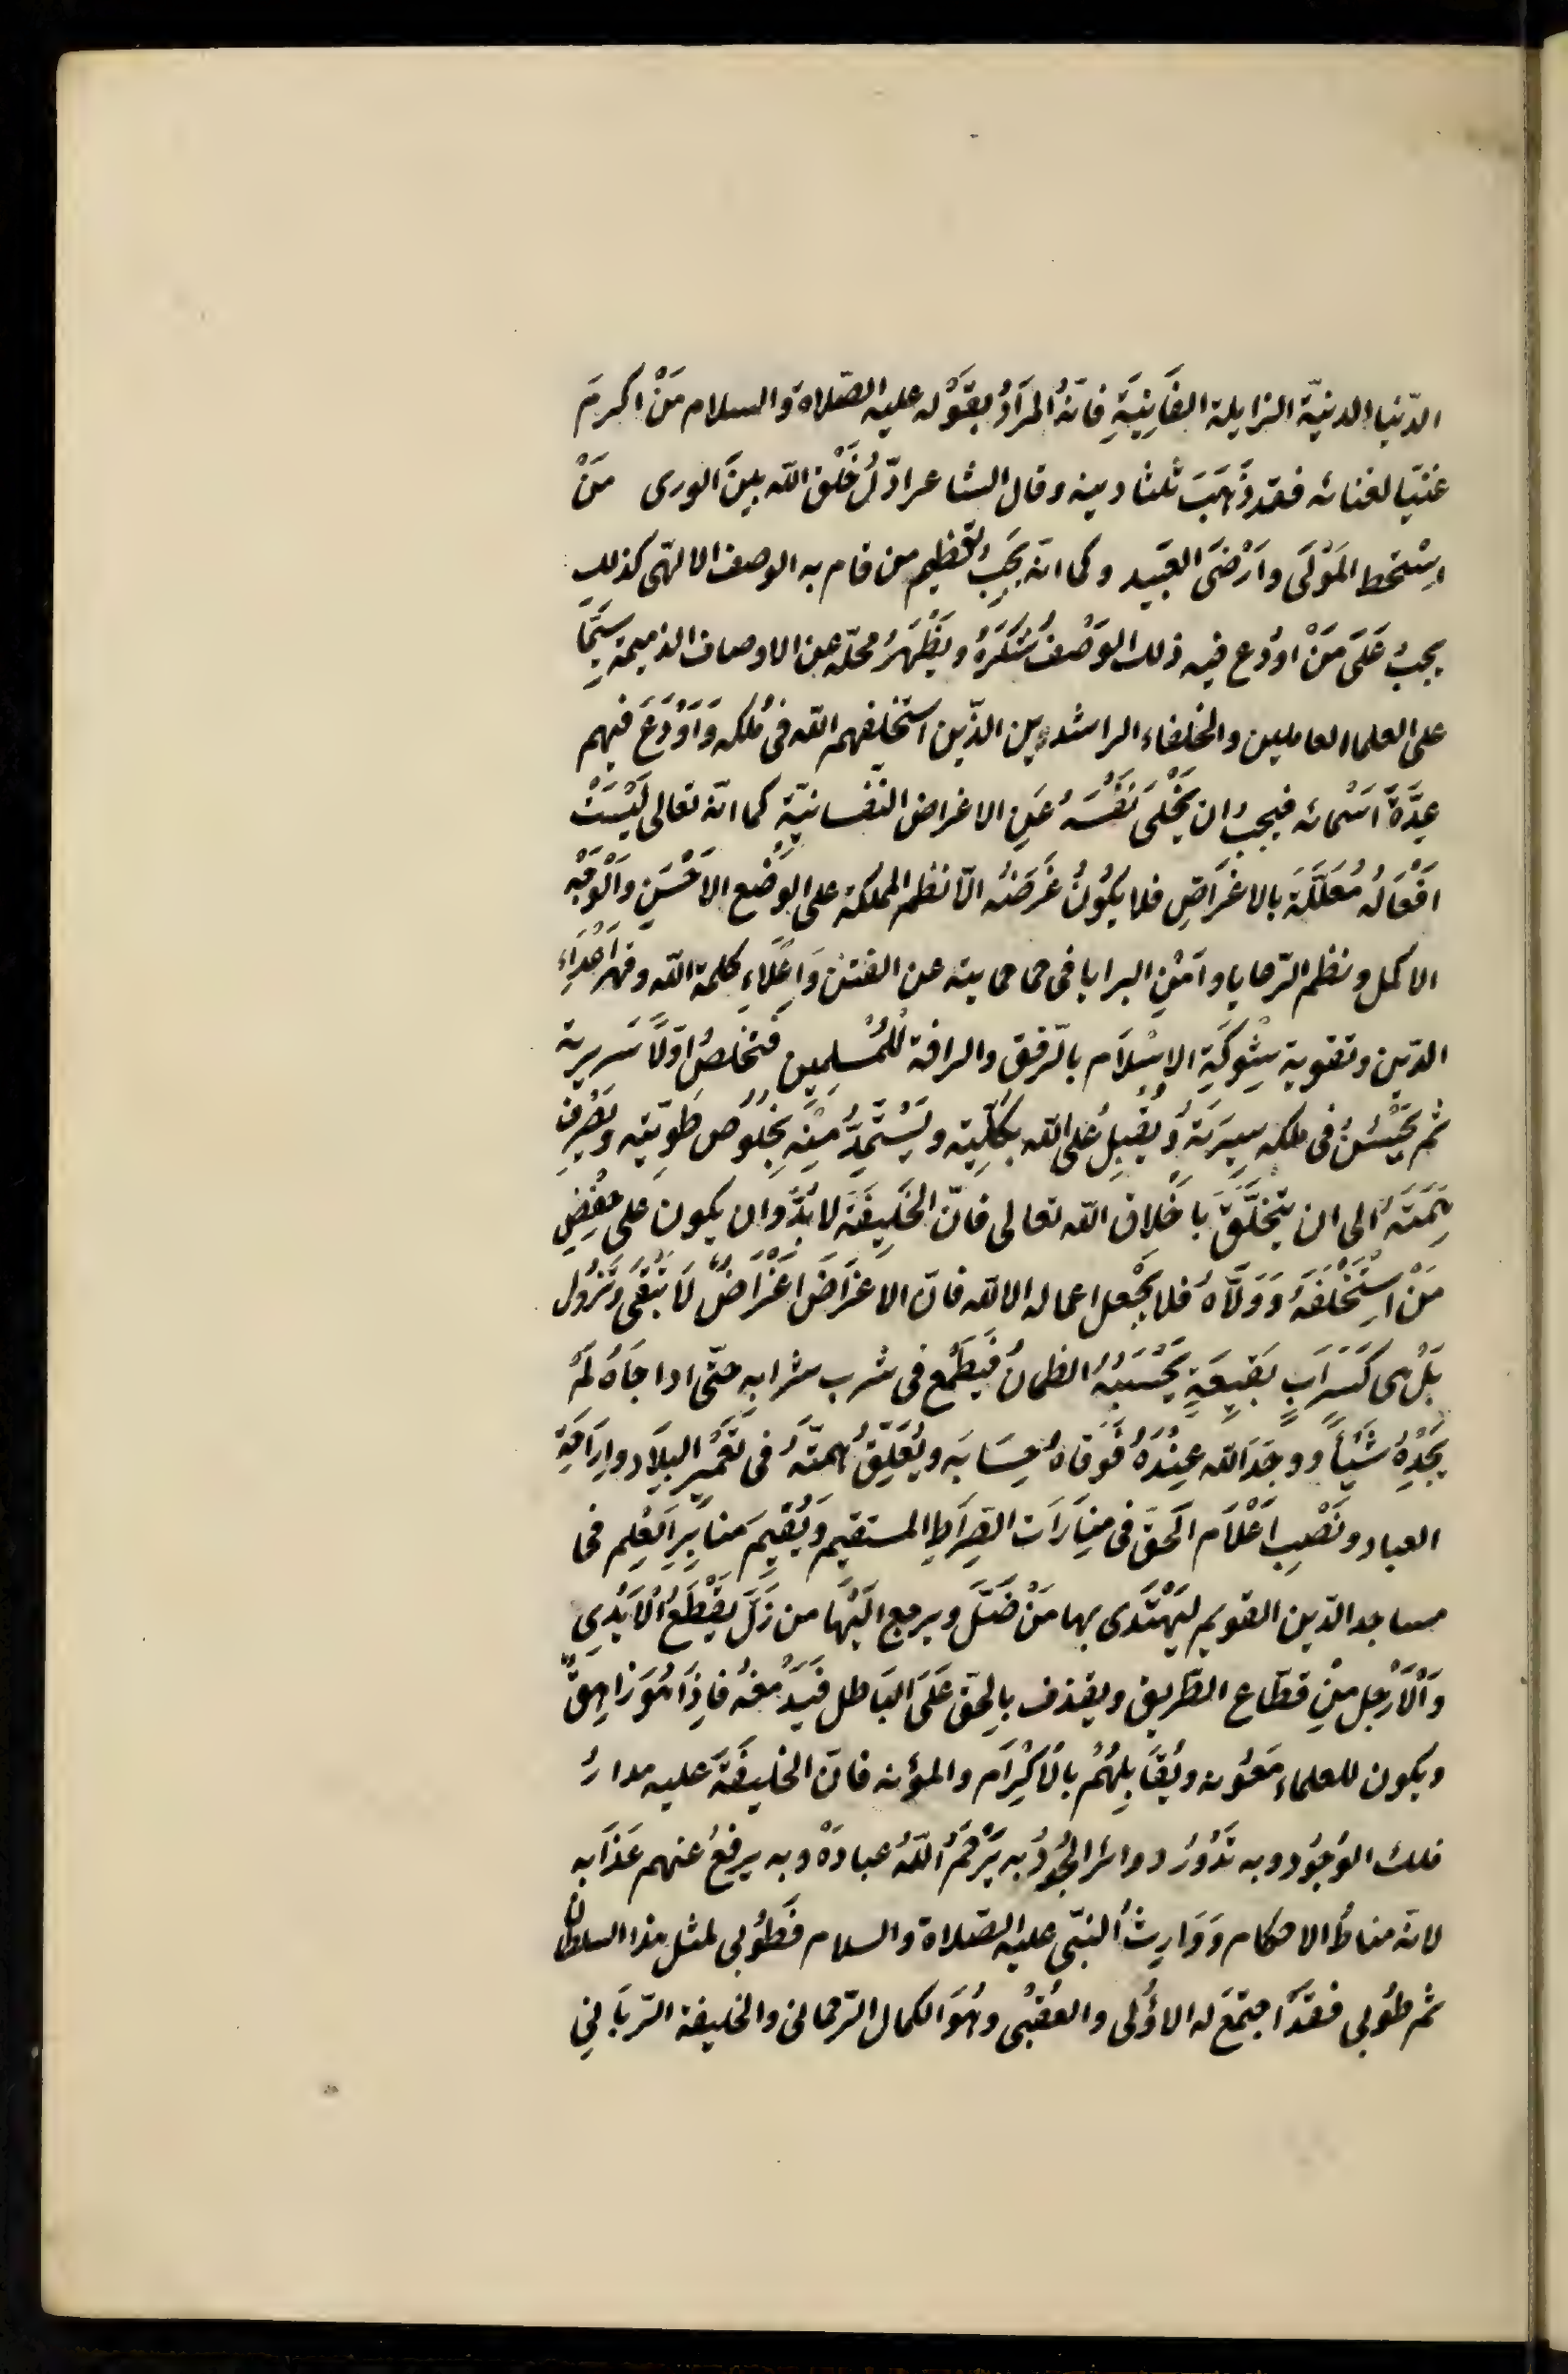 الدّنيا الدنيّة الزايلة الفَانِيَةِ فَانّهُ المرَادُ بقَوْله عليه الصّلاة وَالسلام مَنْ اكرمَ
غنيّا لغنائه فقد ذَهَبَ ثلثا دينه وقال الشاعر اذلُ خَلْق الله بينَ الورى مَنْ
اسْخط المَوْلَى وارْضَى العَبيد وكما انّه يَجبُ تعظيم من قام به الوصف الالهّى كذلك
يجبُ عَلَى مَنْ اودُع فيه ذلك الوَصْفُ شُكرَهُ ويَطْهَرُ محلّه عن الاوصاف الذميمة سِيَّمَا
على العلماء العاملين والخلفاء الراشدين الذّين استخلفهم الله فى مُلكه وَاوْدَعَ فيهم
عِدَّةَ اَسْمائه فيجبُ ان يَخْلىَ نَفْسَهُ عَنِ الاغراض النّفسانيّةِ كما انّه تعالى لَيْسَتْ
افْعَالهُ مُعَلَّلَةَ بالاغْرَاضِ فلا يكُونُ غَرَضَهُ الّا نظم المملكة على الوَضْع الاحْسَنِ والْوَجْهِ
الاكمل ونظم الرّعايا وامْنِ البرايا فى حما حمايته عن الفتن وَاعْلَاءِ كلمة الله وقهر اعْدَاءِ
الدّين وتقوية شوكَةِ الاسْلَام بالرّفق والرافة للمُسْلِمِين فتخلصُ اوّلًا سَريرته
ثم يَحْسُنُ فى ملكه سِيرَتهُ ويُقْبِلُ على الله بكلّيته ويَسْتَمِدُّ مِنْه بخُلُوص طَوِيّته ويَصْرِفُ
هِمّتَهُ الى ان يتَخَلَّقَ باخْلَاق الله تعالى فانّ الخَليفَة لا بُدَّ وان يكون على
مَنْ اسْتَخْلَفَهُ وَوَلّاهُ فلا يَجْعل اعماله الا لله فانّ الاغرَاضَ اعْرَاضُ لَا تَبْقَى وتَزُول
بَلْ هى كَسَرَابٍ بقيعَةٍ يَحْسَبُهُ الظمانُ فَيَطْمَع فى شرب شرابه حتّى اذا جَاهُ لَمْ
يَجدْهُ شَيْئاً ووجَدَ الله عِنْدَهُ فَوَفَاهُ حِسَابَه ويُعَلِّقُ همتّهُ فى تعميرِ البلَاد وارَاحَةِ
العباد ونَصْب اعْلَام الحَق فى منَارَات الصّرَاطِ المستقيم ويُقيمَ منَابرِ العِلم فى
مساجد الدّين القويم ليَهْتَدى بها مَنْ ضَلّ ويرجع الَيْهَا من زَلَّ يقْطَعُ الايْدِى
وَالْارْجل مِنْ قطّاع الطّريق ويقذف بالحَق عَلَى البَاطل فيَدْمغهُ فاِذَا هُوَ زَاهِقٌ
ويكون للعلماء مَعُونه ويُقَابِلهُمُ بالاكْرَام والمؤنه فانّ الخليفَةَ عليه مدارُ
فلك الوُجُود وبه تَدُورُ دوائر الجُودِ به يَرْحَمُ اللهُ عبادَهْ وبه يرفعُ عنهم عَذَابه
لانّه مناطُ الاحكام وَوَارِثُ النبّى عليه الصّلاة والسلام فَطُوبى لمثل هذا السلطان
ثم طوُبى فقَد اجتَمَعَ له الاوُلى والعُقْبُى وهُوَ الكمال الرّحمانى والخليفة الربَّانِي